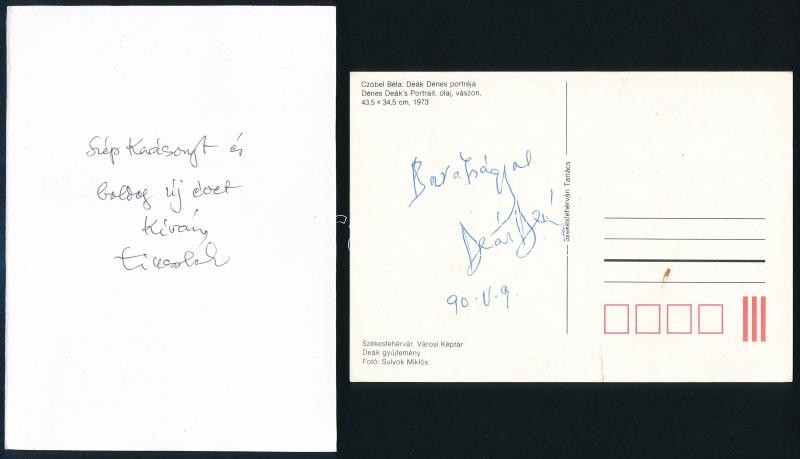 Szép Karácsonyt és
boldog új évet
Kíván
Czóbel Béla: Deák Dénes portréja
Dénes Deák's Portrait, olaj, vászon,
43,5 × 34,5 cm, 1973
Barátsággal
Deák Dénes
90. V. 9.
Székesfehérvári Tanács
Székesfehérvár, Városi Képtár
Deák gyűjtemény
Fotó: Sulyok Miklós